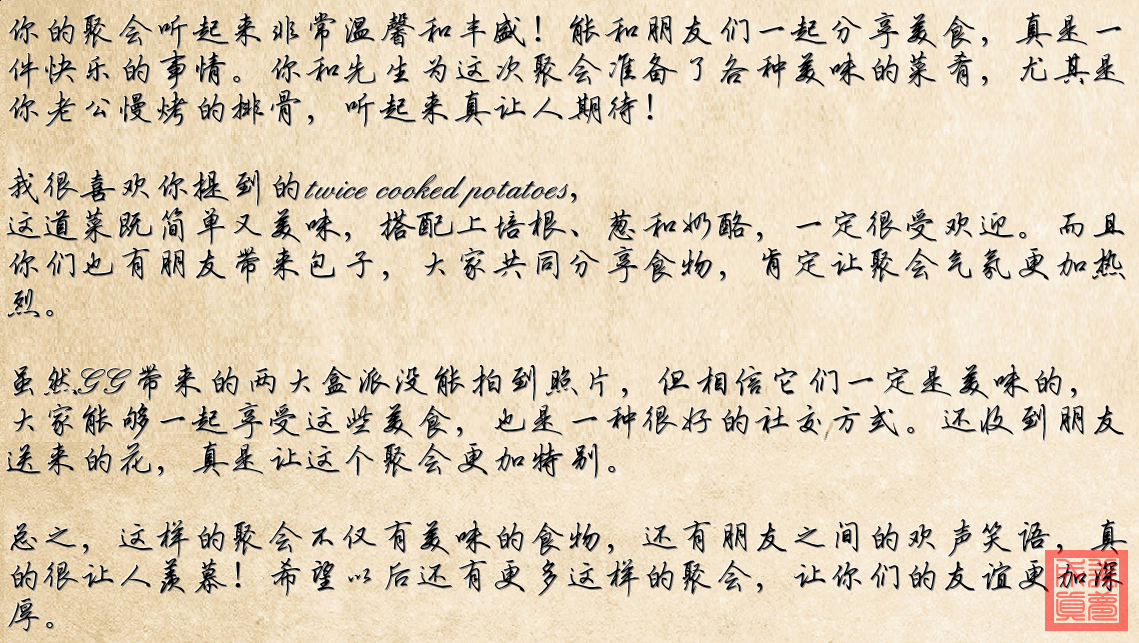 你的聚会听起来非常温馨和丰盛！能和朋友们一起分享美食，真是一
件快乐的事情。你和先生为这次聚会准备了各种美味的菜肴，尤其是
你老公慢烤的排骨，听起来真让人期待！
我很喜欢你提到的twice cooked potatoes,
这道菜既简单又美味，搭配上培根、葱和奶酪，一定很受欢迎。而且
你们也有朋友带来包子，大家共同分享食物，肯定让聚会气氛更加热
烈。
虽然GG带来的两大盒派没能拍到照片，但相信它们一定是美味的，
大家能够一起享受这些美食，也是一种很好的社交方式。还收到朋友
送来的花，真是让这个聚会更加特别。
总之，这样的聚会不仅有美味的食物，还有朋友之间的欢声笑语，真
的很让人羡慕！希望以后还有更多这样的聚会，让你们的友谊更加深
厚。